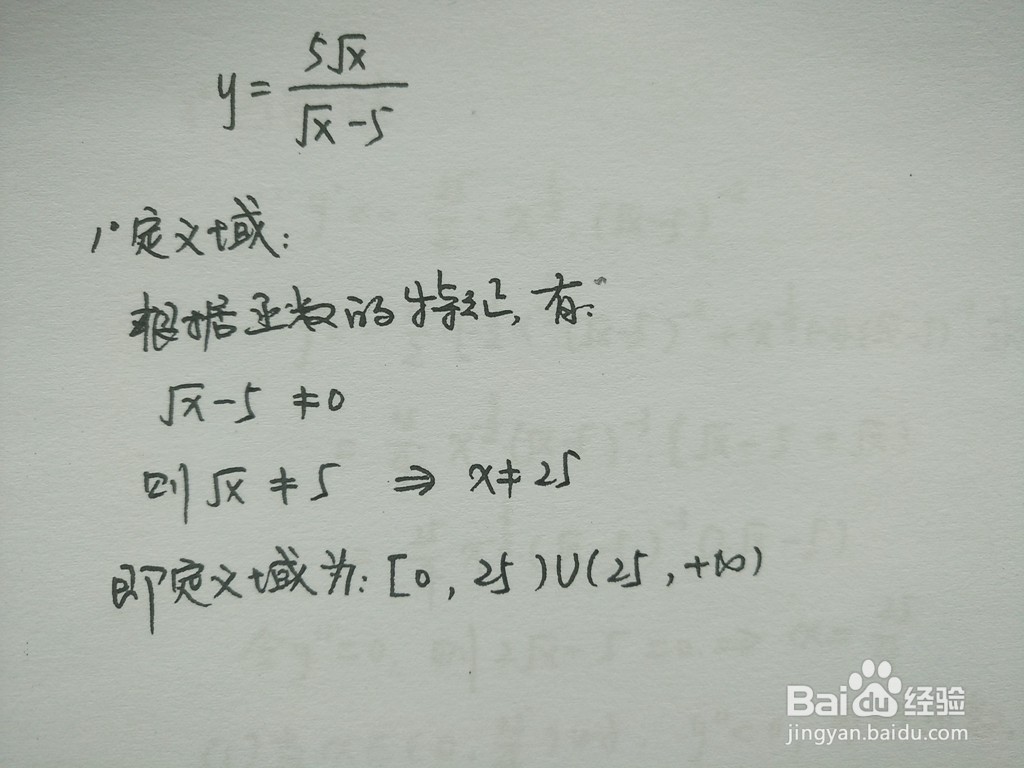 y = 5√x / (√x - 5)
1° 定义域:
根据函数的特征, 有:
√x - 5 ≠ 0
则 √x ≠ 5 ⇒ x ≠ 25
即定义域为: [0, 25)∪(25, +∞)
Bai du 经验
jingyan.baidu.com